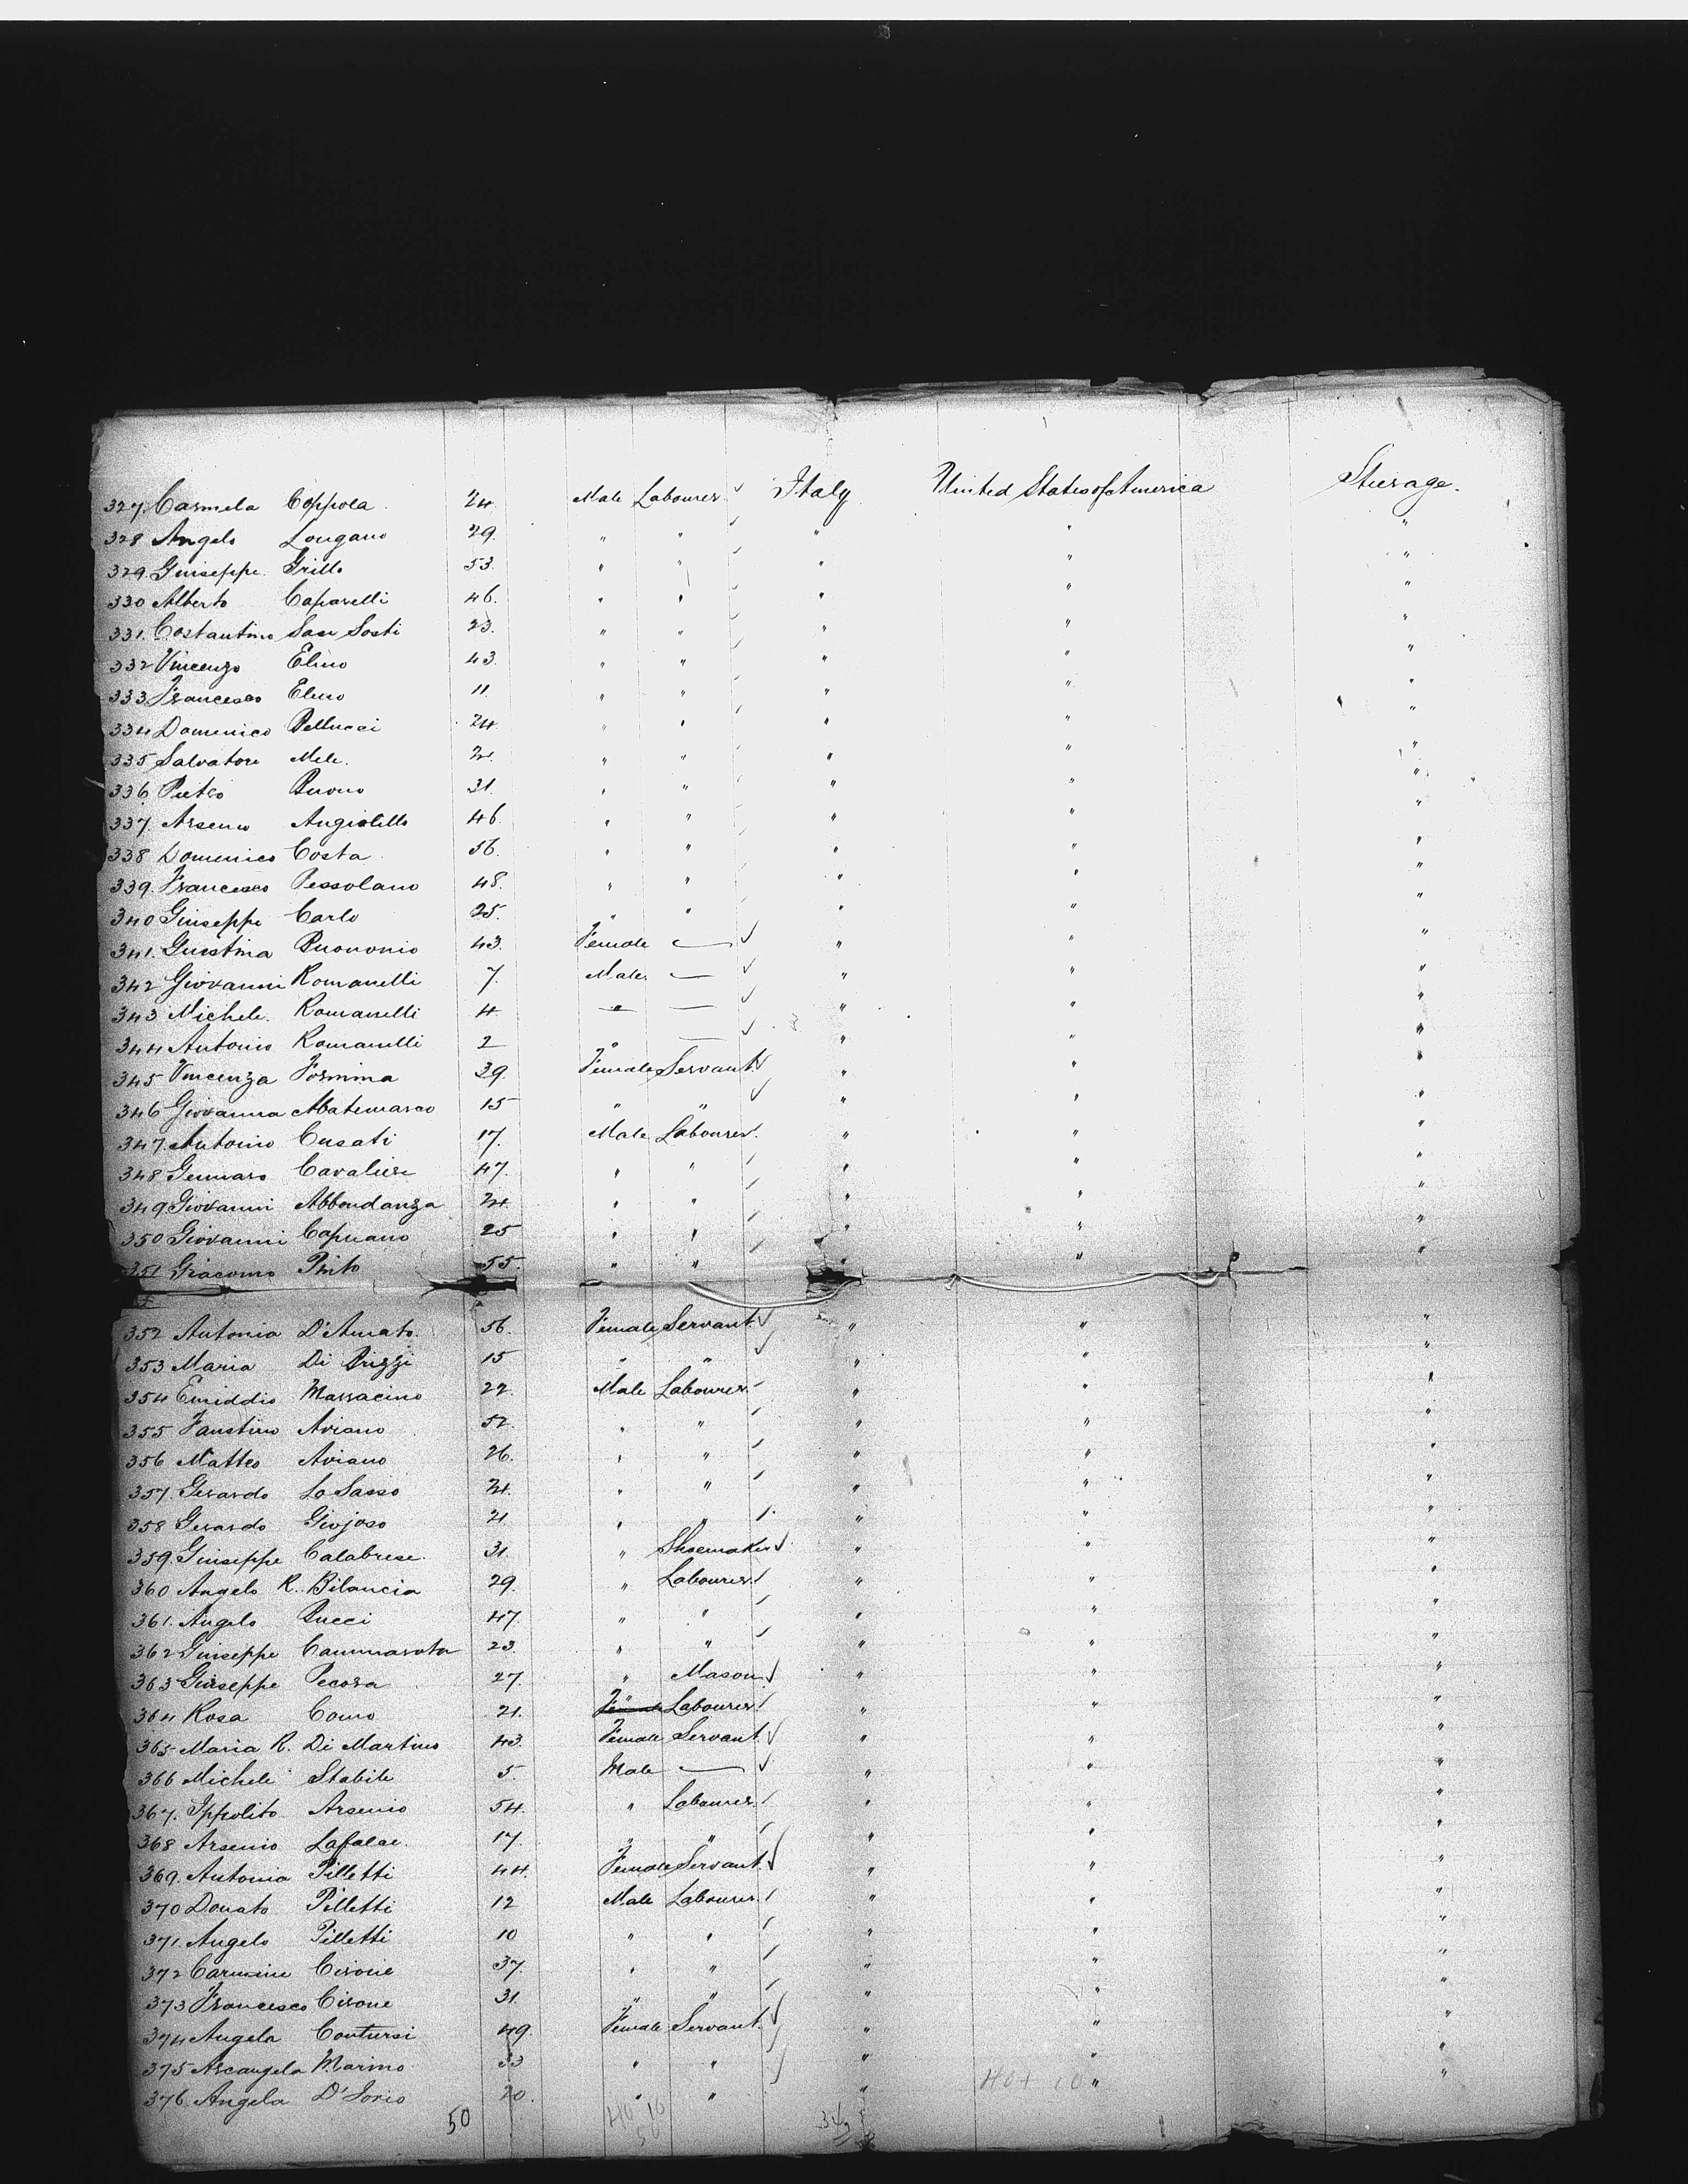 327. Carmela Coppola. 24. Male Labourer Italy United States of America Steerage.
328 Angelo Longano 29. " " " " "
329. Giuseppe Grillo 53. " " " " "
330 Alberto Caparelli 46. " " " " "
331. Costantino San Sosti 23. " " " " "
332 Vincenzo Elino 43. " " " " "
333 Francesco Elino 11. " " " " "
334 Domenico Pellucci 24. " " " " "
335 Salvatore Mele. " " " " "
336 Pietro Buono 31. " " " " "
337. Arsenio Angiolillo 46. " " " " "
338 Domenico Costa 56. " " " " "
339. Francesco Pessolano 48. " " " " "
340 Giuseppe Carlo 25. " " " " "
341. Giustina Buononio 43. Female — " " "
342 Giovanni Romanelli 7. Male — " " "
343 Michele Romanelli 4. " — " " "
344 Antonio Romanelli 2 " — " " "
345 Vincenza Formina 39. Female Servant " " "
346 Giovanna Abatemarco 15 " " " " "
347. Antonio Cusati 17. Male Labourer. " " "
348 Gennaro Cavaliere 47. " " " " "
349 Giovanni Abbondanza 24. " " " " "
350 Giovanni Capuano 25 " " " " "
351 Giacomo Pinto 55. " " " " "
352 Antonia D'Amato. 56. Female Servant " " "
353 Maria Di Brizzi 15 " " " " "
354 Emiddio Massacino 22. Male Labourer " " "
355 Faustino Aviano 52. " " " " "
356 Matteo Aviano 26. " " " " "
357. Gerardo Lo Sasso 24. " " " " "
358 Gerardo Giojoso 21 " " " " "
359. Giuseppe Calabrese. 31. " Shoemaker " " "
360 Angelo R. Bilancia 29. " Labourer " " "
361. Angelo Bucci 47. " " " " "
362 Giuseppe Cammarota 23. " " " " "
363 Giuseppe Pecora 27. " Mason " " "
364 Rosa Como 21. " Labourer " " "
365 Maria R. Di Martino 43. Female Servant. " " "
366 Michele Stabile 5. Male — " " "
367. Ippolito Arsenio 54. " Labourer. " " "
368 Arsenio Lafalce. 17. " " " " "
369. Antonia Pilletti 44. Female Servant. " " "
370 Donato Pilletti 12 Male Labourer. " " "
371. Angelo Pilletti 10 " " " " "
372 Carmine Cirone 37. " " " " "
373 Francesco Cirone 31. " " " " "
374 Angela Contursi 49. Female Servant. " " "
375 Arcangela Marino 33 " " " " "
376. Angela D'Iorio 20. " " " " "
40 + 10
50 40 10
50